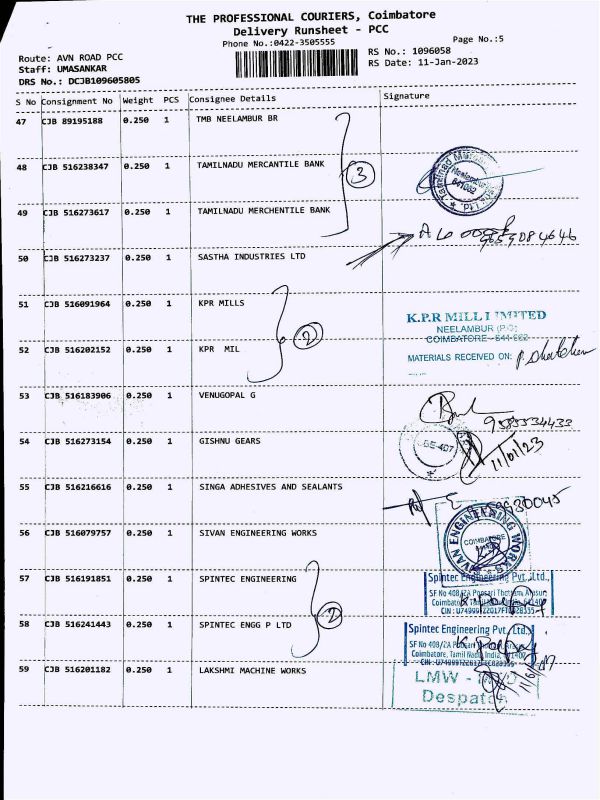 THE PROFESSIONAL COURIERS, Coimbatore
Delivery Runsheet - PCC
Phone No.:0422-3505555
Page No.:5
Route: AVN ROAD PCC
RS No.: 1096058
Staff: UMASANKAR
RS Date: 11-Jan-2023
DRS No.: DCJB109605805
S No Consignment No Weight PCS Consignee Details Signature
47 CJB 89195188 0.250 1 TMB NEELAMBUR BR
48 CJB 516238347 0.250 1 TAMILNADU MERCANTILE BANK
3
49 CJB 516273617 0.250 1 TAMILNADU MERCHENTILE BANK
50 CJB 516273237 0.250 1 SASTHA INDUSTRIES LTD
51 CJB 516091964 0.250 1 KPR MILLS
2
K.P.R MILL LIMITED
NEELAMBUR (P.O)
COIMBATORE - 641 062
52 CJB 516202152 0.250 1 KPR MIL
MATERIALS RECEIVED ON:
53 CJB 516183906 0.250 1 VENUGOPAL G
9585534433
54 CJB 516273154 0.250 1 GISHNU GEARS
11/01/23
55 CJB 516216616 0.250 1 SINGA ADHESIVES AND SEALANTS
56 CJB 516079757 0.250 1 SIVAN ENGINEERING WORKS
SIVAN ENGINEERING WORKS
COIMBATORE
57 CJB 516191851 0.250 1 SPINTEC ENGINEERING
2
Spintec Engineering Pvt.,Ltd.,
SF No 408/2A Pappari Thottam, Arasur,
58 CJB 516241443 0.250 1 SPINTEC ENGG P LTD
Spintec Engineering Pvt.,Ltd.,
Coimbatore, Tamil Nadu, India,
59 CJB 516201182 0.250 1 LAKSHMI MACHINE WORKS
LMW -
Despatch